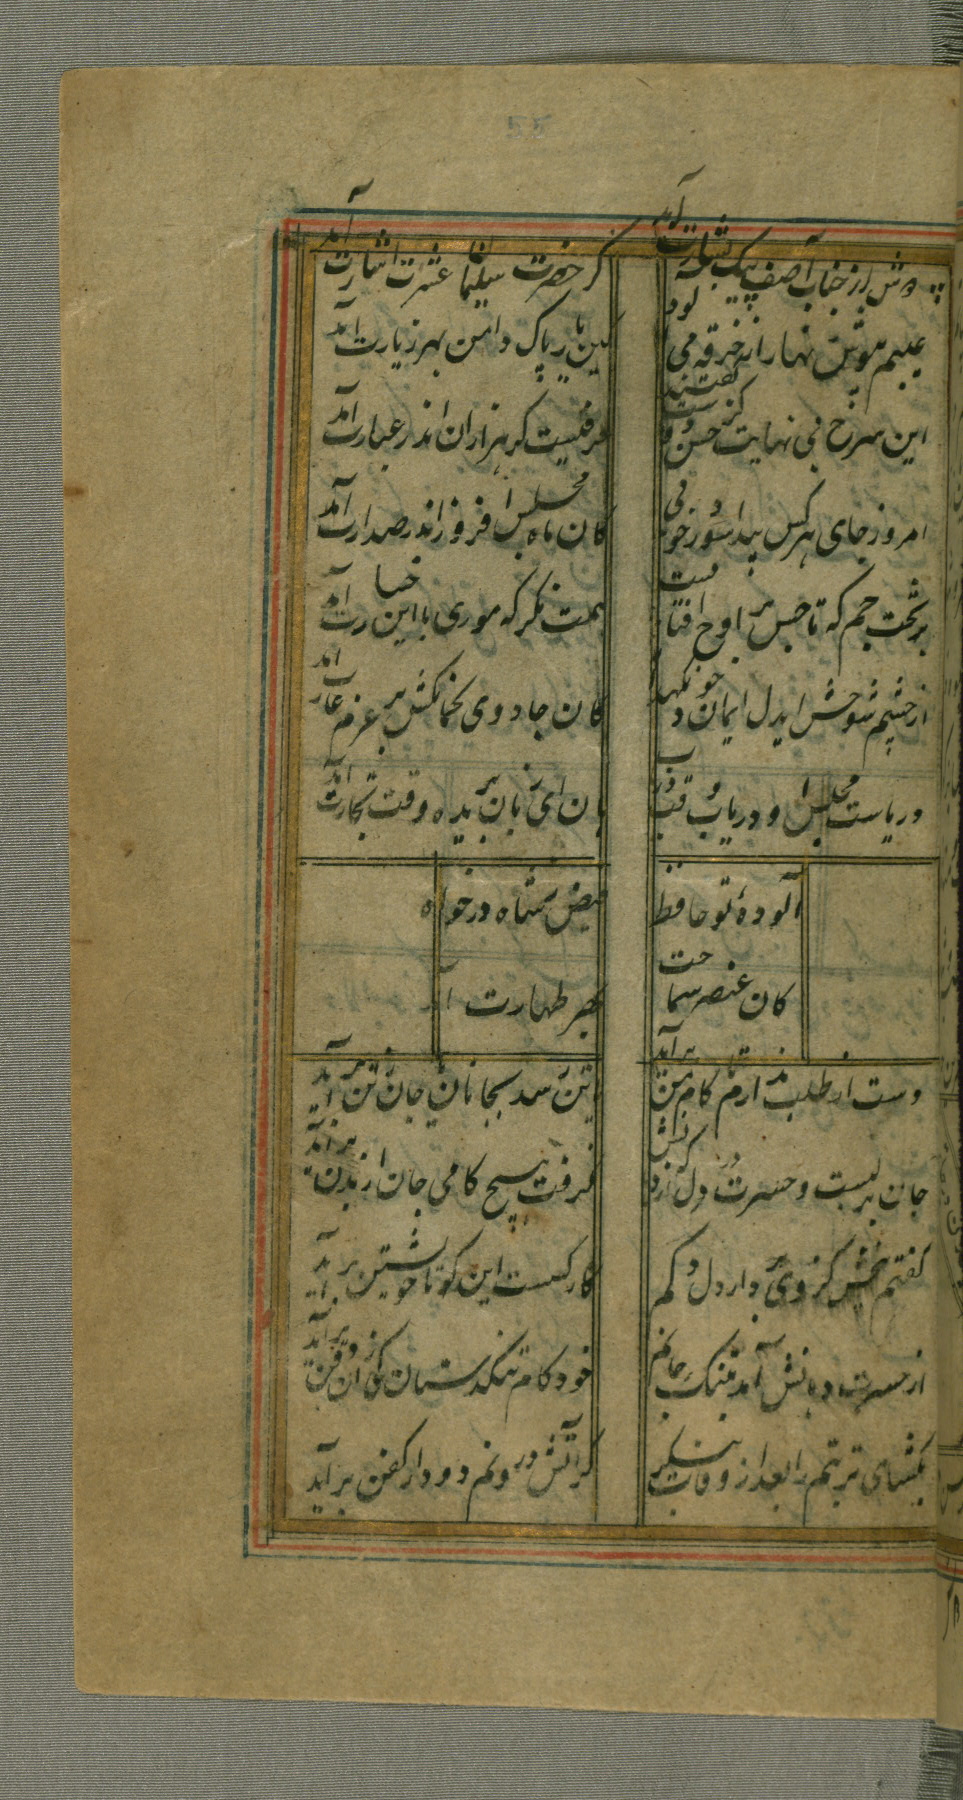 دوش از جناب آصف پیک بشارت آمد
کز حضرت سلیمان عشرت اشارت آمد
عیبم بپوش زنهار از خرقه می آلود
کاین پاک دامن بهر زیارت آمد
این شرح بی نهایت حسن گفتند
حرفیست کز هزاران اندر عبارت آمد
امروز جای هر کس پیدا شود ز خوبی
کان ماه مجلس افروز اندر صدارت آمد
بر تخت جم که تاجش بر اوج آفتابست
همت نگر که موری با این خسارت آمد
از چشم شوخش ایدل ایمان خود نگهدار
کان جادوی کمانکش بر عزم غارت آمد
دریاست مجلس او دریاب وقت
هان ای زبان بریده وقت تجارت آمد
آلودهٔ تو حافظ
فیض ز شاه درخواه
کان عنصر سماحت
بهر طهارت آمد
دست از طلب ندارم تا کام من بر آید
یا تن رسد بجانان یا جان ز تن بر آید
جان بر لبست و حسرت در دل که از لبش
نگرفته هیچ کامی جان از بدن بر آید
گفتم بخویش کز وی بر دار دل دلم
کار کسست این کو با خویشتن بر آید
از حسرت دهانش آمد بتنگ جانم
خود کام تنگدستان کی زان دهن بر آید
بگشای تربتم را بعد از وفات بنگر
کز آتش درونم دود از کفن بر آید